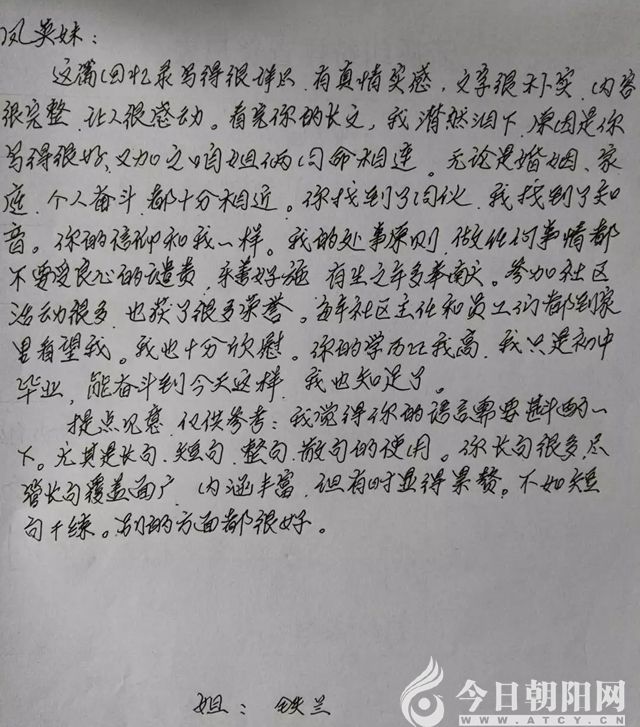 凤英妹：
这篇回忆录写得很详尽 有真情实感，文字很朴实、内容
很完整、让人很感动。看完你的长文，我潸然泪下、原因是你
写得很好，又加之咱姐俩同命相连。无论是婚姻、家
庭、个人奋斗、都十分相近。你找到了同伙、我找到了知
音。你的信仰和我一样。我的处事原则、做任何事情都
不要受良心的谴责，乐善好施 有生之年多奉献。参加社区
活动很多、也获了很多荣誉。每年社区主任和员工们都到家
里看望我。我也十分欣慰。你的学历比我高、我只是初中
毕业，能奋斗到今天这样、我也知足了。
提点见意、仅供参考：我觉得你的语言需要斟酌一
下。尤其是长句、短句、整句、散句的使用。你长句很多、尽
管长句覆盖面广、内涵丰富、但有时显得累赘。不如短
句干练。别的方面都很好。
姐：铁兰
今日朝阳网
WWW.ATCY.CN